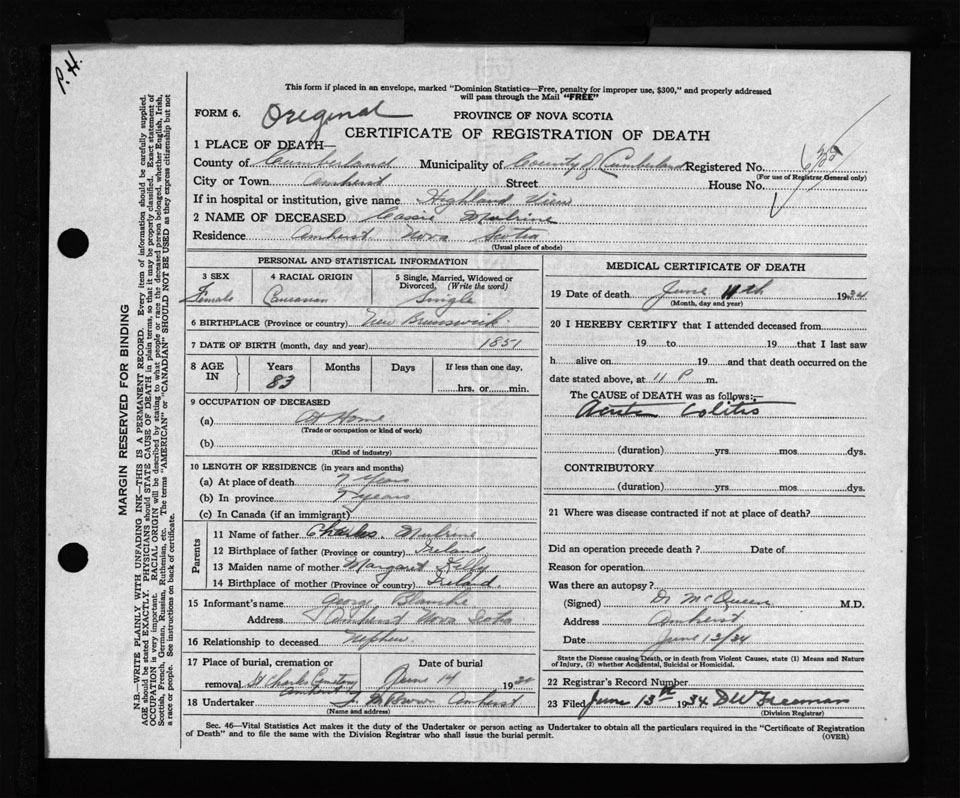 P.H.
This form if placed in an envelope, marked "Dominion Statistics—Free, penalty for improper use, $300," and properly addressed
will pass through the Mail "FREE"
FORM 6. Original PROVINCE OF NOVA SCOTIA
CERTIFICATE OF REGISTRATION OF DEATH
1 PLACE OF DEATH—
County of Cumberland Municipality of County of Cumberland Registered No.
(For use of Registrar General only)
City or Town Amherst Street House No.
If in hospital or institution, give name Highland View
2 NAME OF DECEASED Cassie Mulrine
Residence Amherst Nova Scotia
(Usual place of abode)
PERSONAL AND STATISTICAL INFORMATION
3 SEX 4 RACIAL ORIGIN 5 Single, Married, Widowed or
Divorced. (Write the word)
Female Caucasian Single
6 BIRTHPLACE (Province or country) New Brunswick
7 DATE OF BIRTH (month, day and year) 1851
8 AGE IN Years Months Days If less than one day,
83 hrs. or min.
9 OCCUPATION OF DECEASED
(a) At Home
(Trade or occupation or kind of work)
(b)
(Kind of industry)
10 LENGTH OF RESIDENCE (in years and months)
(a) At place of death 7 Years
(b) In province 7 years
(c) In Canada (if an immigrant)
Parents
11 Name of father Charles. Mulrine
12 Birthplace of father (Province or country) Ireland
13 Maiden name of mother Margaret
14 Birthplace of mother (Province or country) Ireland
15 Informant's name George Blanche
Address Amherst Nova Scotia
16 Relationship to deceased Nephew
17 Place of burial, cremation or Date of burial
removal St Charles Cemetery Amherst June 14 1934
18 Undertaker Brown Amherst
(Name and address)
MEDICAL CERTIFICATE OF DEATH
19 Date of death June 11th 1934
(Month, day and year)
20 I HEREBY CERTIFY that I attended deceased from
19 to 19 that I last saw
h alive on 19 and that death occurred on the
date stated above, at 11 P m.
The CAUSE OF DEATH was as follows:—
Acute Colitis
(duration) yrs mos dys.
CONTRIBUTORY
(duration) yrs mos dys.
21 Where was disease contracted if not at place of death?
Did an operation precede death? Date of
Reason for operation
Was there an autopsy?
(Signed) Dr McQueen M.D.
Address Amherst
Date June 13/34
State the Disease causing Death, or in death from Violent Causes, state (1) Means and Nature
of Injury, (2) whether Accidental, Suicidal or Homicidal.
22 Registrar's Record Number
23 Filed June 13th 1934 DW Freeman
(Division Registrar)
Sec. 46—Vital Statistics Act makes it the duty of the Undertaker or person acting as Undertaker to obtain all the particulars required in the "Certificate of Registration
of Death" and to file the same with the Division Registrar who shall issue the burial permit. (OVER)
MARGIN RESERVED FOR BINDING
N.B.—WRITE PLAINLY WITH UNFADING INK—THIS IS A PERMANENT RECORD. Every item of information should be carefully supplied.
AGE should be stated EXACTLY. PHYSICIANS should STATE CAUSE OF DEATH in plain terms, so that it may be properly classified. Exact statement of
OCCUPATION is very important. RACIAL ORIGIN will be described by stating to what people or race the deceased person belonged, whether English, Irish,
Scottish, French, German, Russian, Ruthenian, etc. The terms "AMERICAN" or "CANADIAN" SHOULD NOT BE USED as they express citizenship but not
a race or people. See instructions on back of certificate.